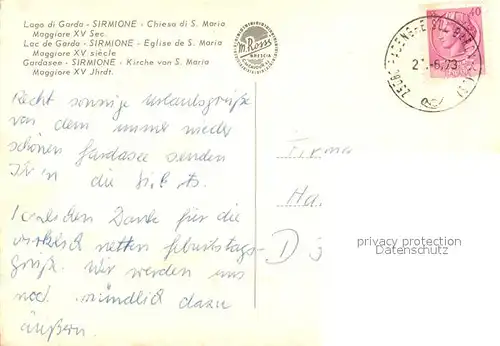 Lago di Garda - SIRMIONE - Chiesa di S. Maria
Maggiore XV Sec.
Lac de Garda - SIRMIONE - Eglise de S. Maria
Maggiore XV siècle
Gardasee - SIRMIONE - Kirche van S. Maria
Maggiore XV Jhrdt.
M. Ross
BRESCIA
21.-6.73
Recht sonnige Urlaubsgrüße
von dem immer wieder
schönen Gardasee senden
die
Herzlichen Dank für die
wirklich netten Geburtstags-
grüße. Wir werden uns
noch mündlich dazu
äußern.
Firma
Ha
D
privacy protection
Datenschutz